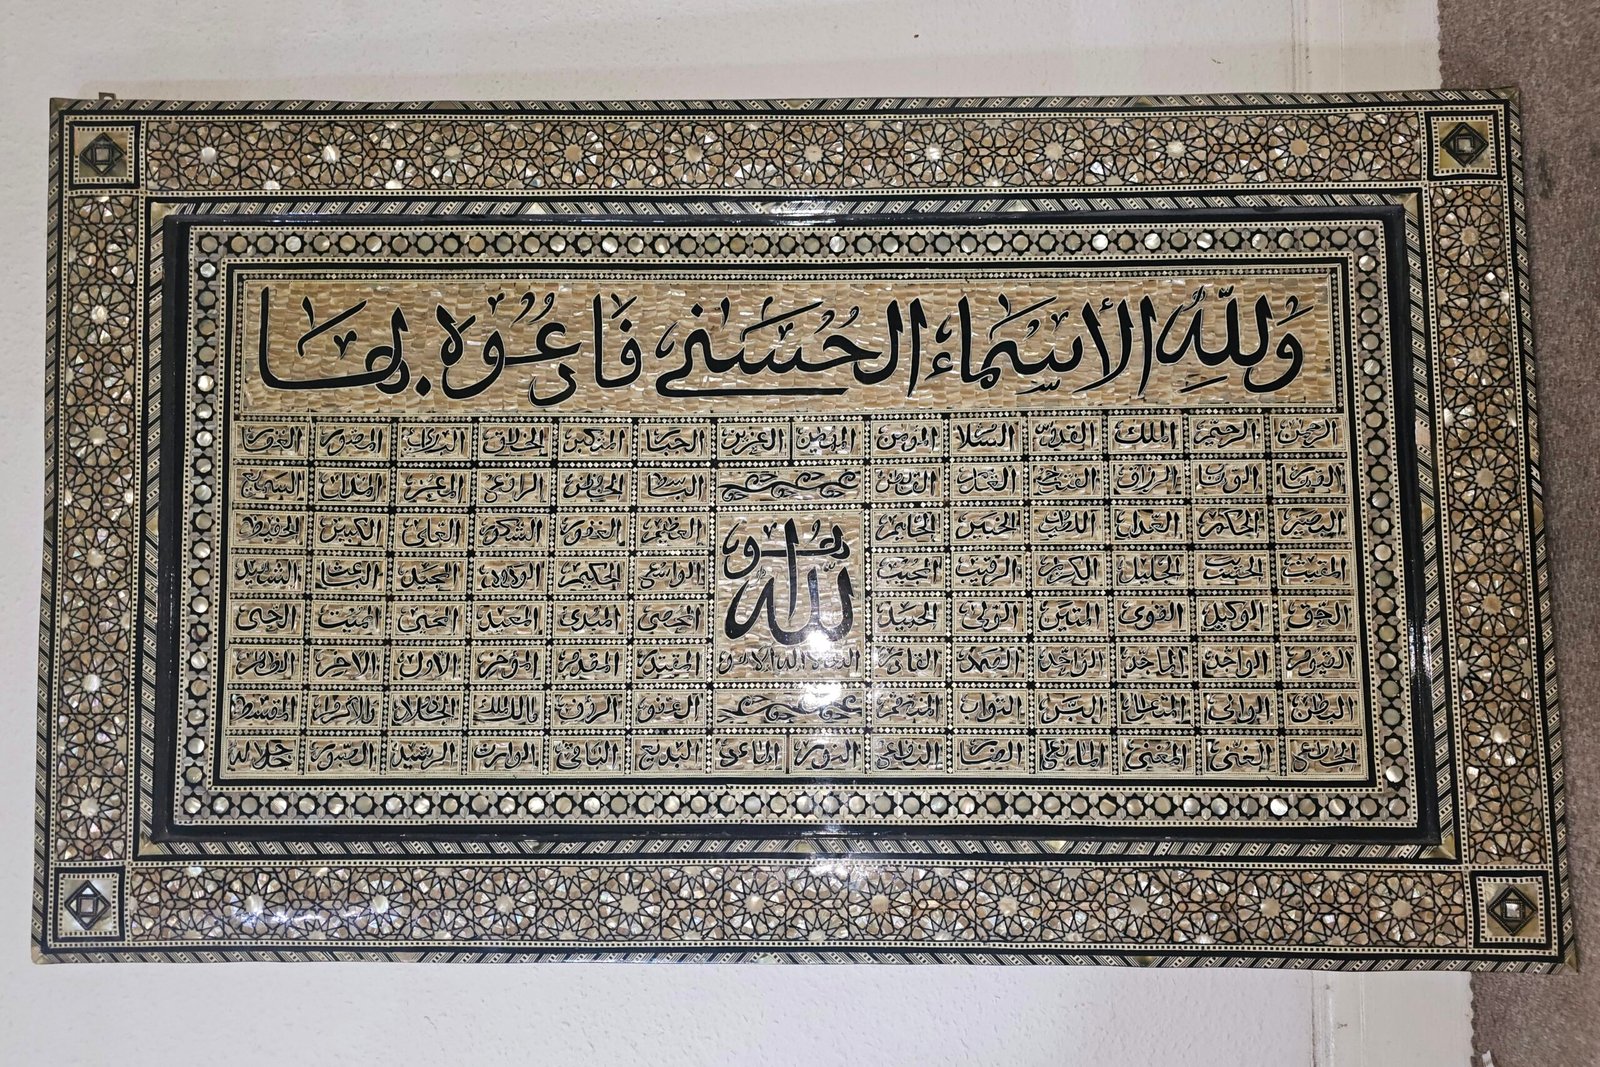 وَلِلَّهِ الأَسْمَاءُ الحُسْنَى فَادْعُوهُ بِهَا
الرحمن الرحيم الملك القدوس السلام المؤمن المهيمن العزيز الجبار المتكبر الخالق البارئ المصور الغفار
القهار الوهاب الرزاق الفتاح العليم القابض الباسط الخافض الرافع المعز المذل السميع
البصير الحكم العدل اللطيف الخبير الحليم العظيم الغفور الشكور العلي الكبير الحفيظ
هو الله
المقيت الحسيب الجليل الكريم الرقيب المجيب الواسع الحكيم الودود المجيد الباعث الشهيد
الحق الوكيل القوي المتين الولي الحميد المحصي المبدئ المعيد المحيي المميت الحي
القيوم الواجد الماجد الواحد الصمد القادر المقتدر المقدم المؤخر الأول الآخر الظاهر
الباطن الوالي المتعال البر التواب المنتقم العفو الرؤف مالك الملك ذو الجلال والاكرام المقسط
الجامع الغني المغني المانع الضار النافع النور الهادي البديع الباقي الوارث الرشيد الصبور جل جلاله